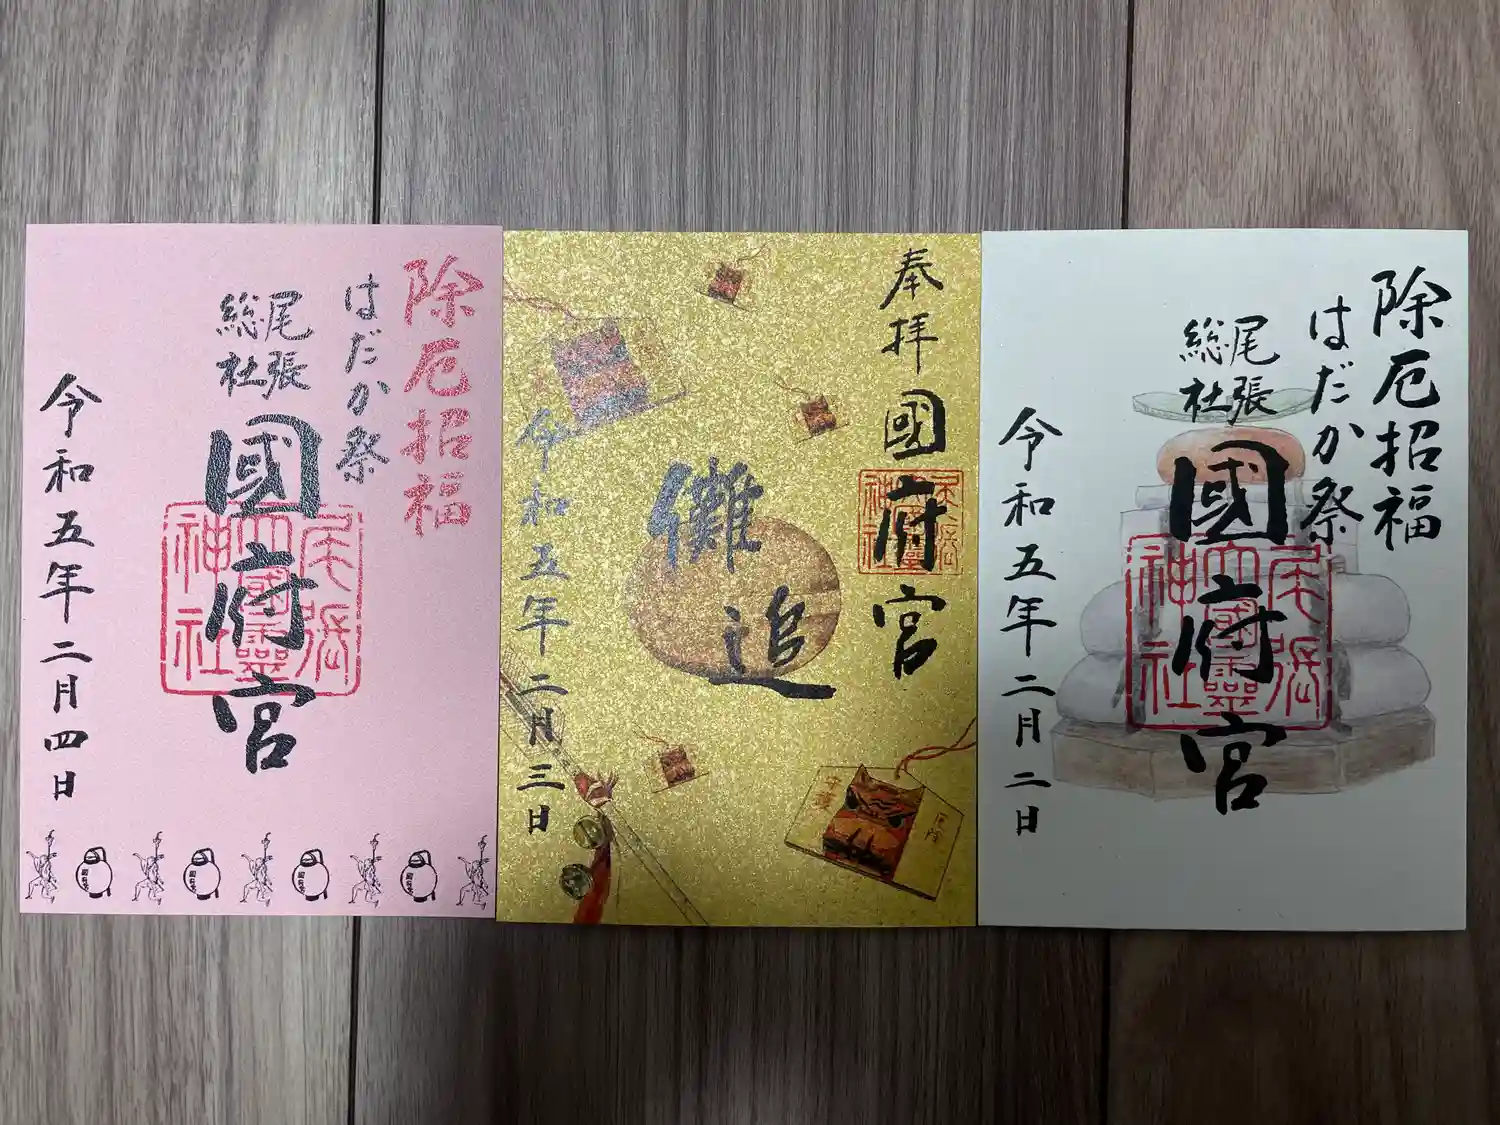 除厄招福
はだか祭
尾張
総社
國府宮
尾張
大國霊
神社
令和五年二月四日
奉拝
國府宮
尾張
神社
儺追
令和五年二月三日
除厄招福
はだか祭
尾張
総社
國府宮
尾張
大國霊
神社
令和五年二月二日